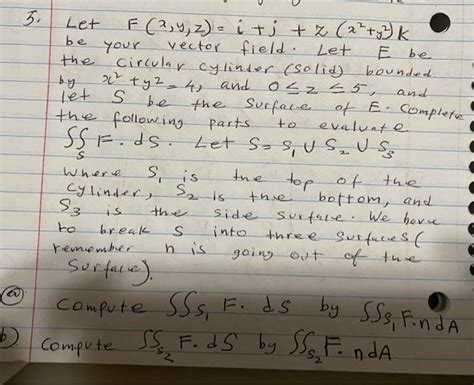 5. Let F(x,y,z) = i + j + z(x²+y²)k
be your vector field. Let E be
the circular cylinder (solid) bounded
by x² + y² = 4, and 0 ≤ z ≤ 5, and
let S be the surface of E. Complete
the following parts to evaluate
∫∫_S F. dS. Let S = S₁ ∪ S₂ ∪ S₃
where S₁ is the top of the
cylinder, S₂ is the bottom, and
S₃ is the side surface. We have
to break S into three surfaces (
remember n is going out of the
surface).
a) compute ∫∫_S₁ F. dS by ∫∫_S₁ F.n dA
b) compute ∫∫_S₂ F. dS by ∫∫_S₂ F. n dA